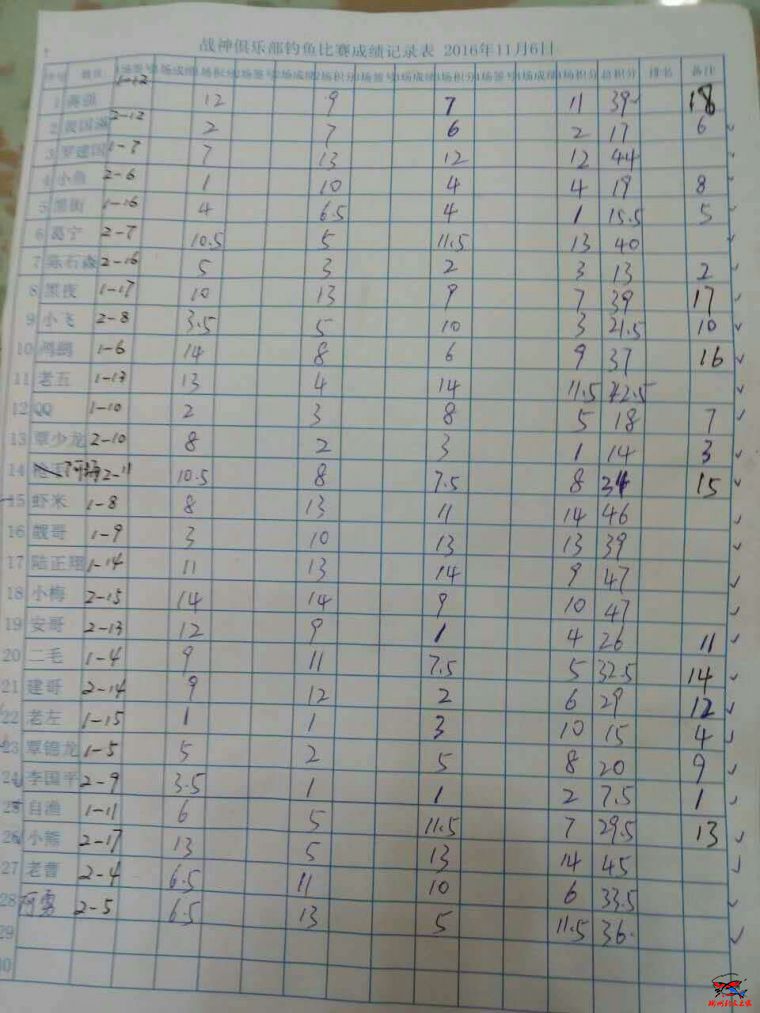 战神俱乐部钓鱼比赛成绩记录表 2016年11月6日
序号 姓名 1场签号 1场成绩 1场积分 2场签号 2场成绩 2场积分 3场签号 3场成绩 3场积分 4场签号 4场成绩 4场积分 总积分 排名 备注
1 1-12 12 9 7 11 39 18
2 2-12 2 7 6 2 17 6
3 罗建国 1-7 7 13 12 12 44
4 小鱼 2-6 1 10 4 4 19 8
5 黑街 1-16 4 6.5 4 1 15.5 5
6 葛宁 2-7 10.5 5 11.5 13 40
7 陈石森 2-16 5 3 2 3 13 2
8 黑夜 1-17 10 13 9 7 39 17
9 小飞 2-8 3.5 5 10 3 21.5 10
10 鸿鹏 1-6 14 8 6 9 37 16
11 老五 1-13 13 4 14 11.5 42.5
12 QQ 1-10 2 3 8 5 18 7
13 覃少龙 2-10 8 2 3 1 14 3
14 2-11 10.5 8 7.5 8 34 15
15 虾米 1-8 8 13 11 14 46
16 靓哥 1-9 3 10 13 13 39
17 陆正翔 1-14 11 13 14 9 47
18 小梅 2-15 14 14 9 10 47
19 安哥 2-13 12 9 1 4 26 11
20 二毛 1-4 9 11 7.5 5 32.5 14
21 建哥 2-14 9 12 2 6 29 12
22 老左 1-15 1 1 3 10 15 4
23 覃锦龙 1-5 5 2 5 8 20 9
24 李国平 2-9 3.5 1 1 2 7.5 1
25 自渔 1-11 6 5 11.5 7 29.5 13
26 小熊 2-17 13 5 13 14 45
27 老曹 2-4 6.5 11 10 6 33.5
28 阿勇 2-5 6.5 13 5 11.5 36
29
30